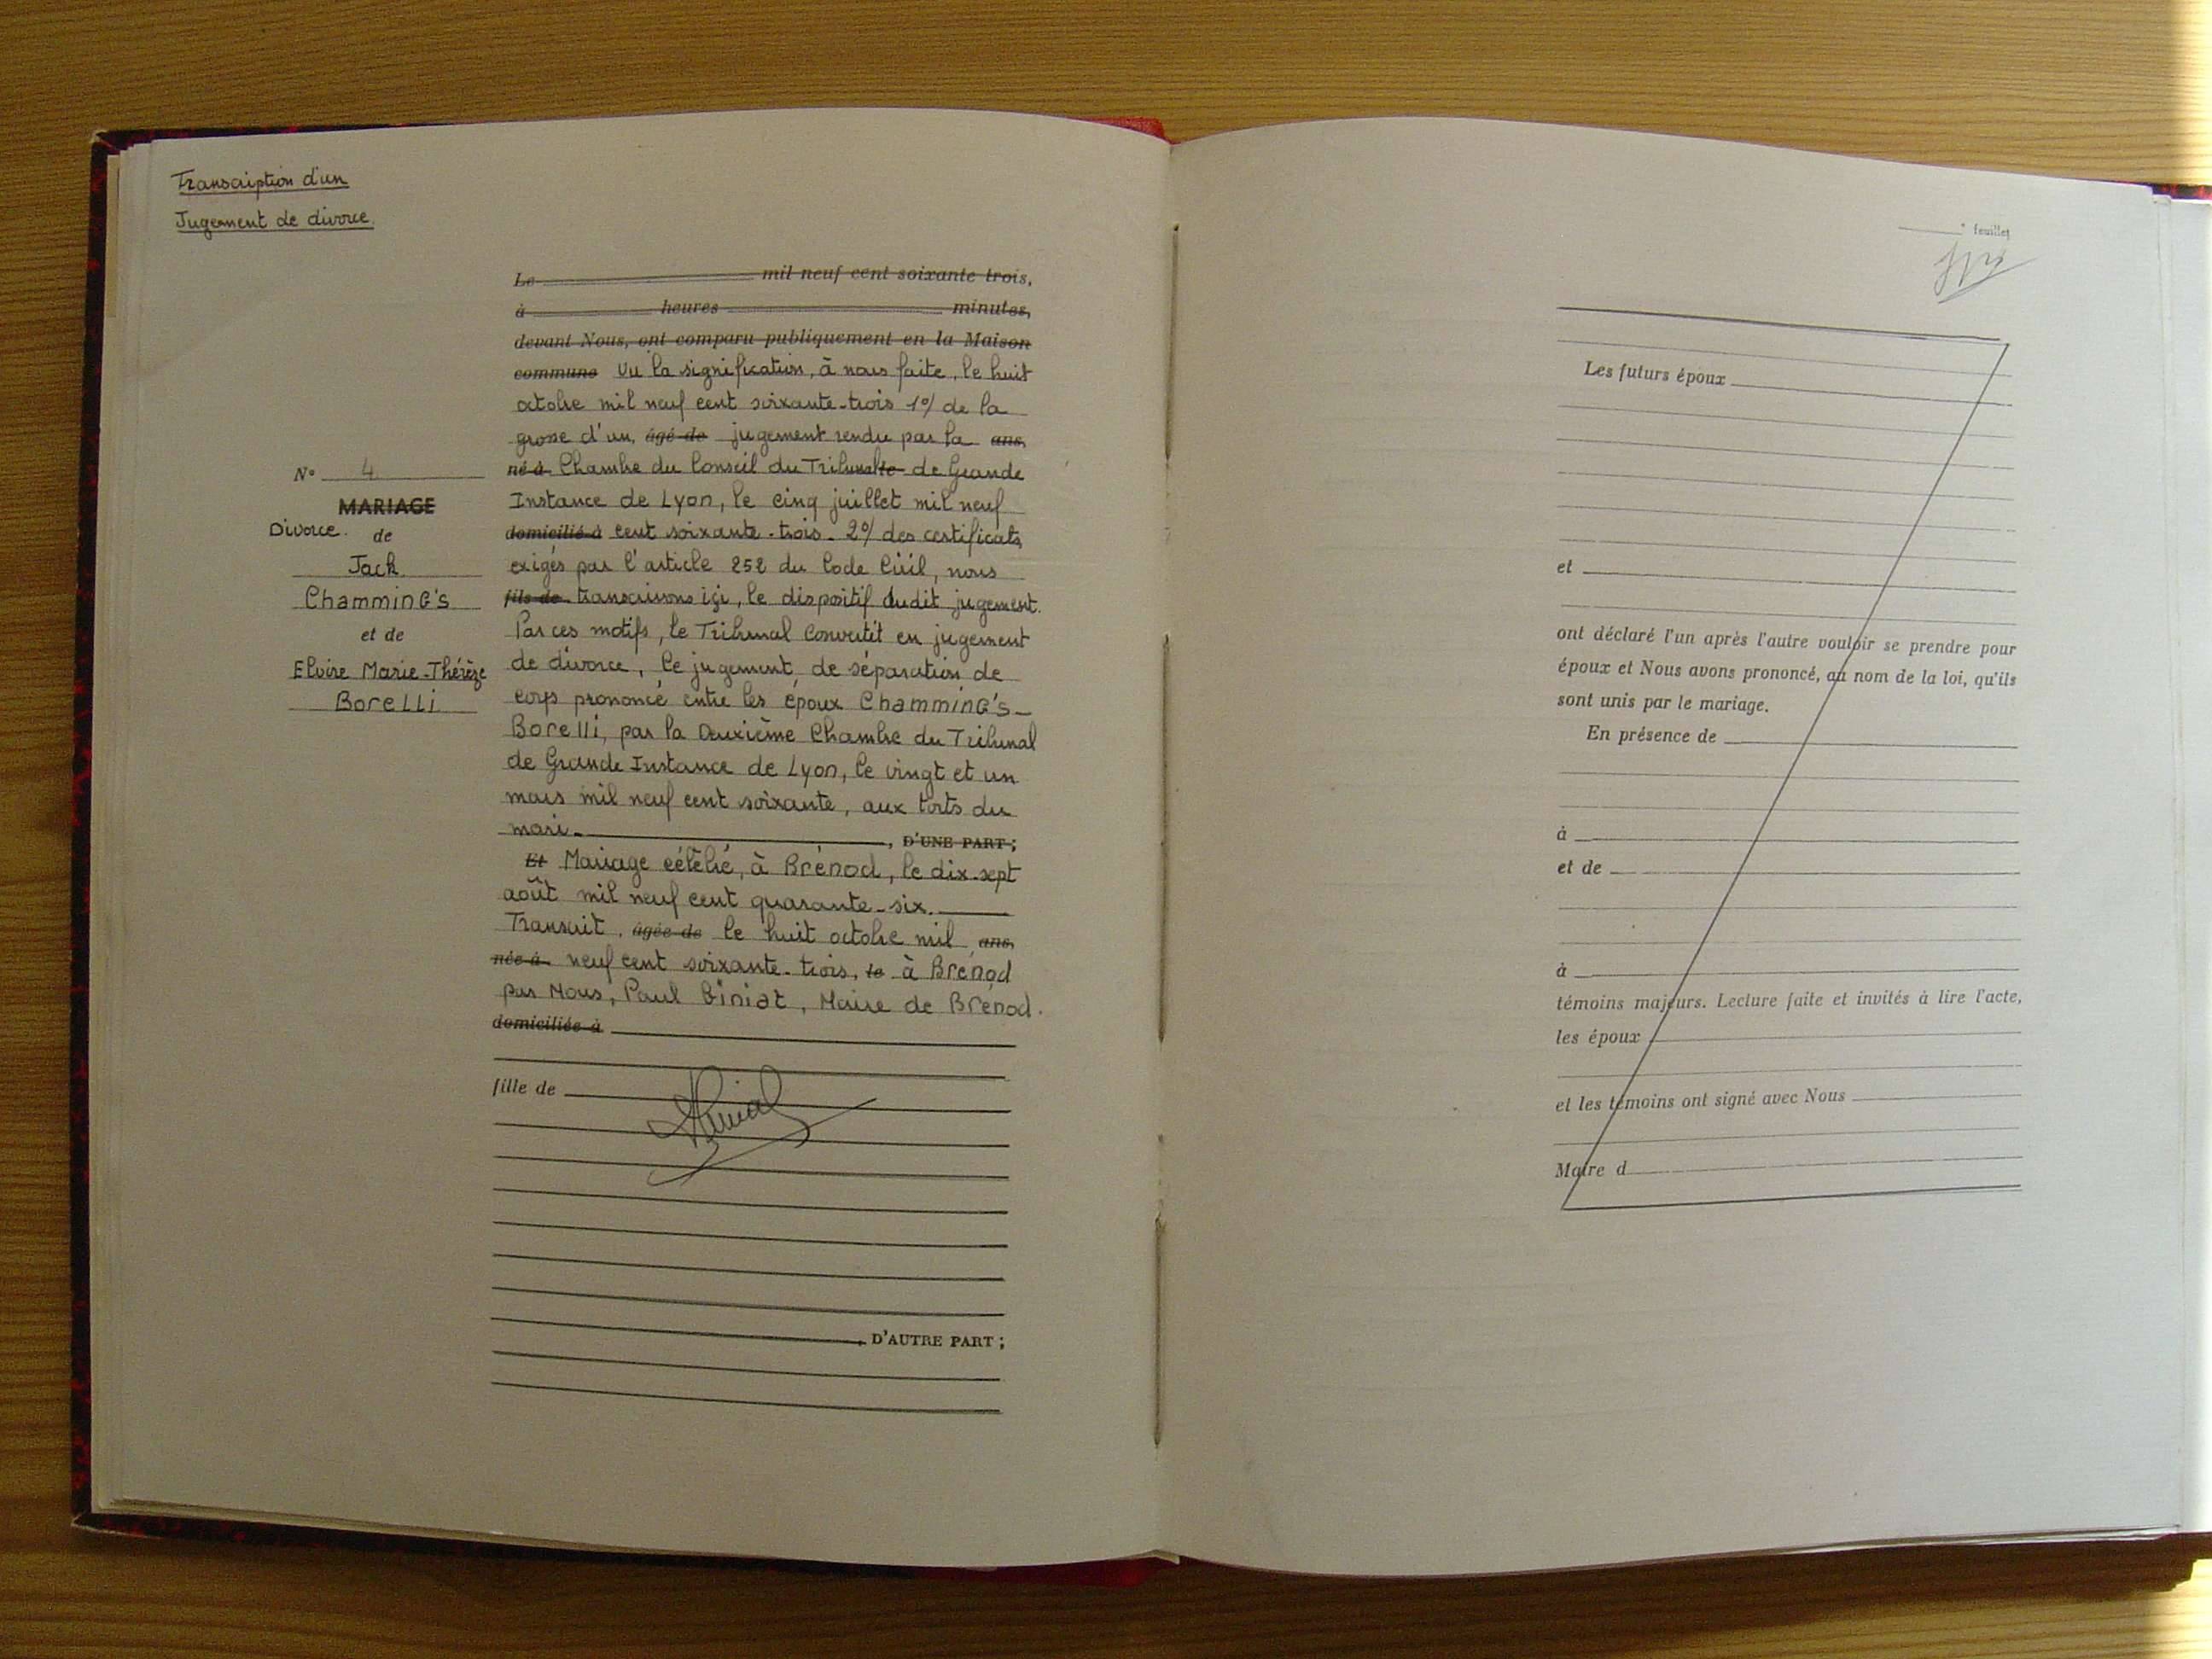 Transcription d'un
Jugement de divorce.
Le mil neuf cent soixante trois,
à heures minutes,
devant Nous, ont comparu publiquement en la Maison
commune Vu la signification, à nous faite, le huit
octobre mil neuf cent soixante-trois 1º/ de la
grosse d'un, âgé de jugement rendu par la ans,
né à Chambre du Conseil du Tribunal le de Grande
Instance de Lyon, le cinq juillet mil neuf
domicilié à cent soixante-trois. 2º/ des certificats
exigés par l'article 252 du Code Civil, nous
fils de transcrivons içi, le dispositif dudit jugement.
Par ces motifs, le Tribunal convertit en jugement
de divorce, le jugement de séparation de
corps prononcé entre les époux Chamming's-
Borelli, par la Deuxième Chambre du Tribunal
de Grande Instance de Lyon, le vingt et un
mars mil neuf cent soixante, aux torts du
mari. , D'UNE PART ;
Et Mariage célébré, à Brénod, le dix-sept
août mil neuf cent quarante-six.
Transcrit, âgée de le huit octobre mil ans,
née à neuf cent soixante-trois, le à Brénod
par Nous, Paul Giniat, Maire de Brénod.
domiciliée à
fille de
, D'AUTRE PART ;
Nº 4
MARIAGE
Divorce. de
Jack
Chamming's
et de
Elvire Marie-Thérèze
Borelli
e feuillet
Les futurs époux
et
ont déclaré l'un après l'autre vouloir se prendre pour
époux et Nous avons prononcé, au nom de la loi, qu'ils
sont unis par le mariage.
En présence de
à
et de
à
témoins majeurs. Lecture faite et invités à lire l'acte,
les époux
et les témoins ont signé avec Nous
Maire d